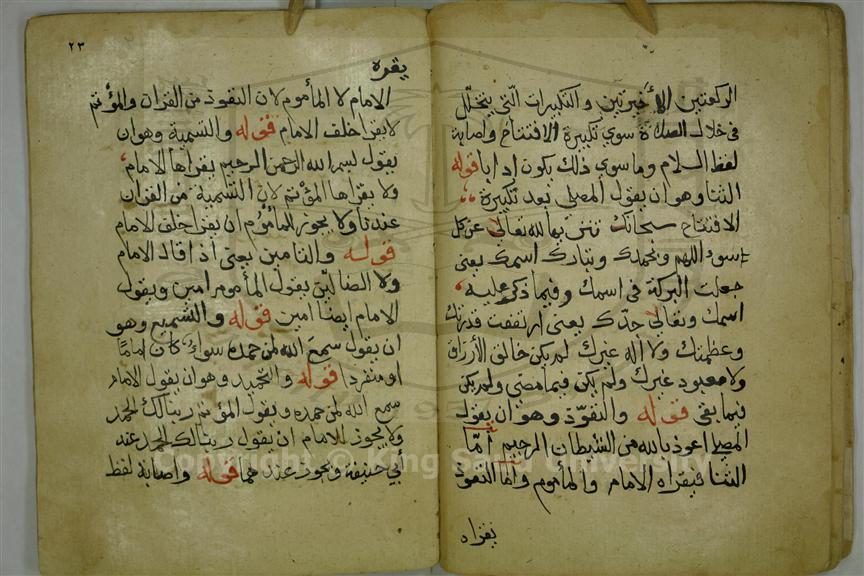 الركعتين الأخيرتين والتكبيرات التي يتخلل
في خلال الصلاة سوي تكبيرة الافتتاح واصابة
لفظ السلام وما سوي ذلك يكون ادابا قوله
الثنا وهو ان يقول المصلي بعد تكبيرة
الافتتاح سبحانك تنزيها لله تعالي عن كل
سوء اللهم وبحمدك وتبارك اسمك يعني
جعلت البركة في اسمك وفيما ذكر عليه
اسمك وتعالي جدك يعني ارتفعت قدرتك
وعظمتك ولا اله غيرك لم يكن خالق الأرزاق
ولا معبود غيرك ولم يكن فيما مضي ولم يكن
فيما بقي قوله والتعوّذ وهو ان يقول
المصلي اعوذ بالله من الشيطان الرجيم امّا
الثنا فيقراه الامام والمأموم واما التعوذ
يقراه
٢٣
يقره
الامام لا المأموم لان التعوذ من القران والمؤتم
لا يقرا خلف الامام قوله والتسمية وهو ان
يقول بسم الله الرحمن الرحيم يقراها الامام
ولا يقراها المؤتم لان التسمية من القران
عندنا ولا يجوز للمأموم ان يقرا خلف الامام
قوله والتامين يعني اذا قال الامام
ولا الضالين يقول المأموم امين ويقول
الامام ايضا امين قوله والتسميع وهو
ان يقول سمع الله لمن حمده سواء كان اماما
او منفردا قوله والتحميد وهو ان يقول الامام
سمع الله لمن حمده ويقول المؤتم ربنا لك الحمد
ولا يجوز للامام ان يقول ربنا لك الحمد عند
أبي حنيفة ويجوز عندهما قوله واصابة لفظ
Copyright © King Saud University